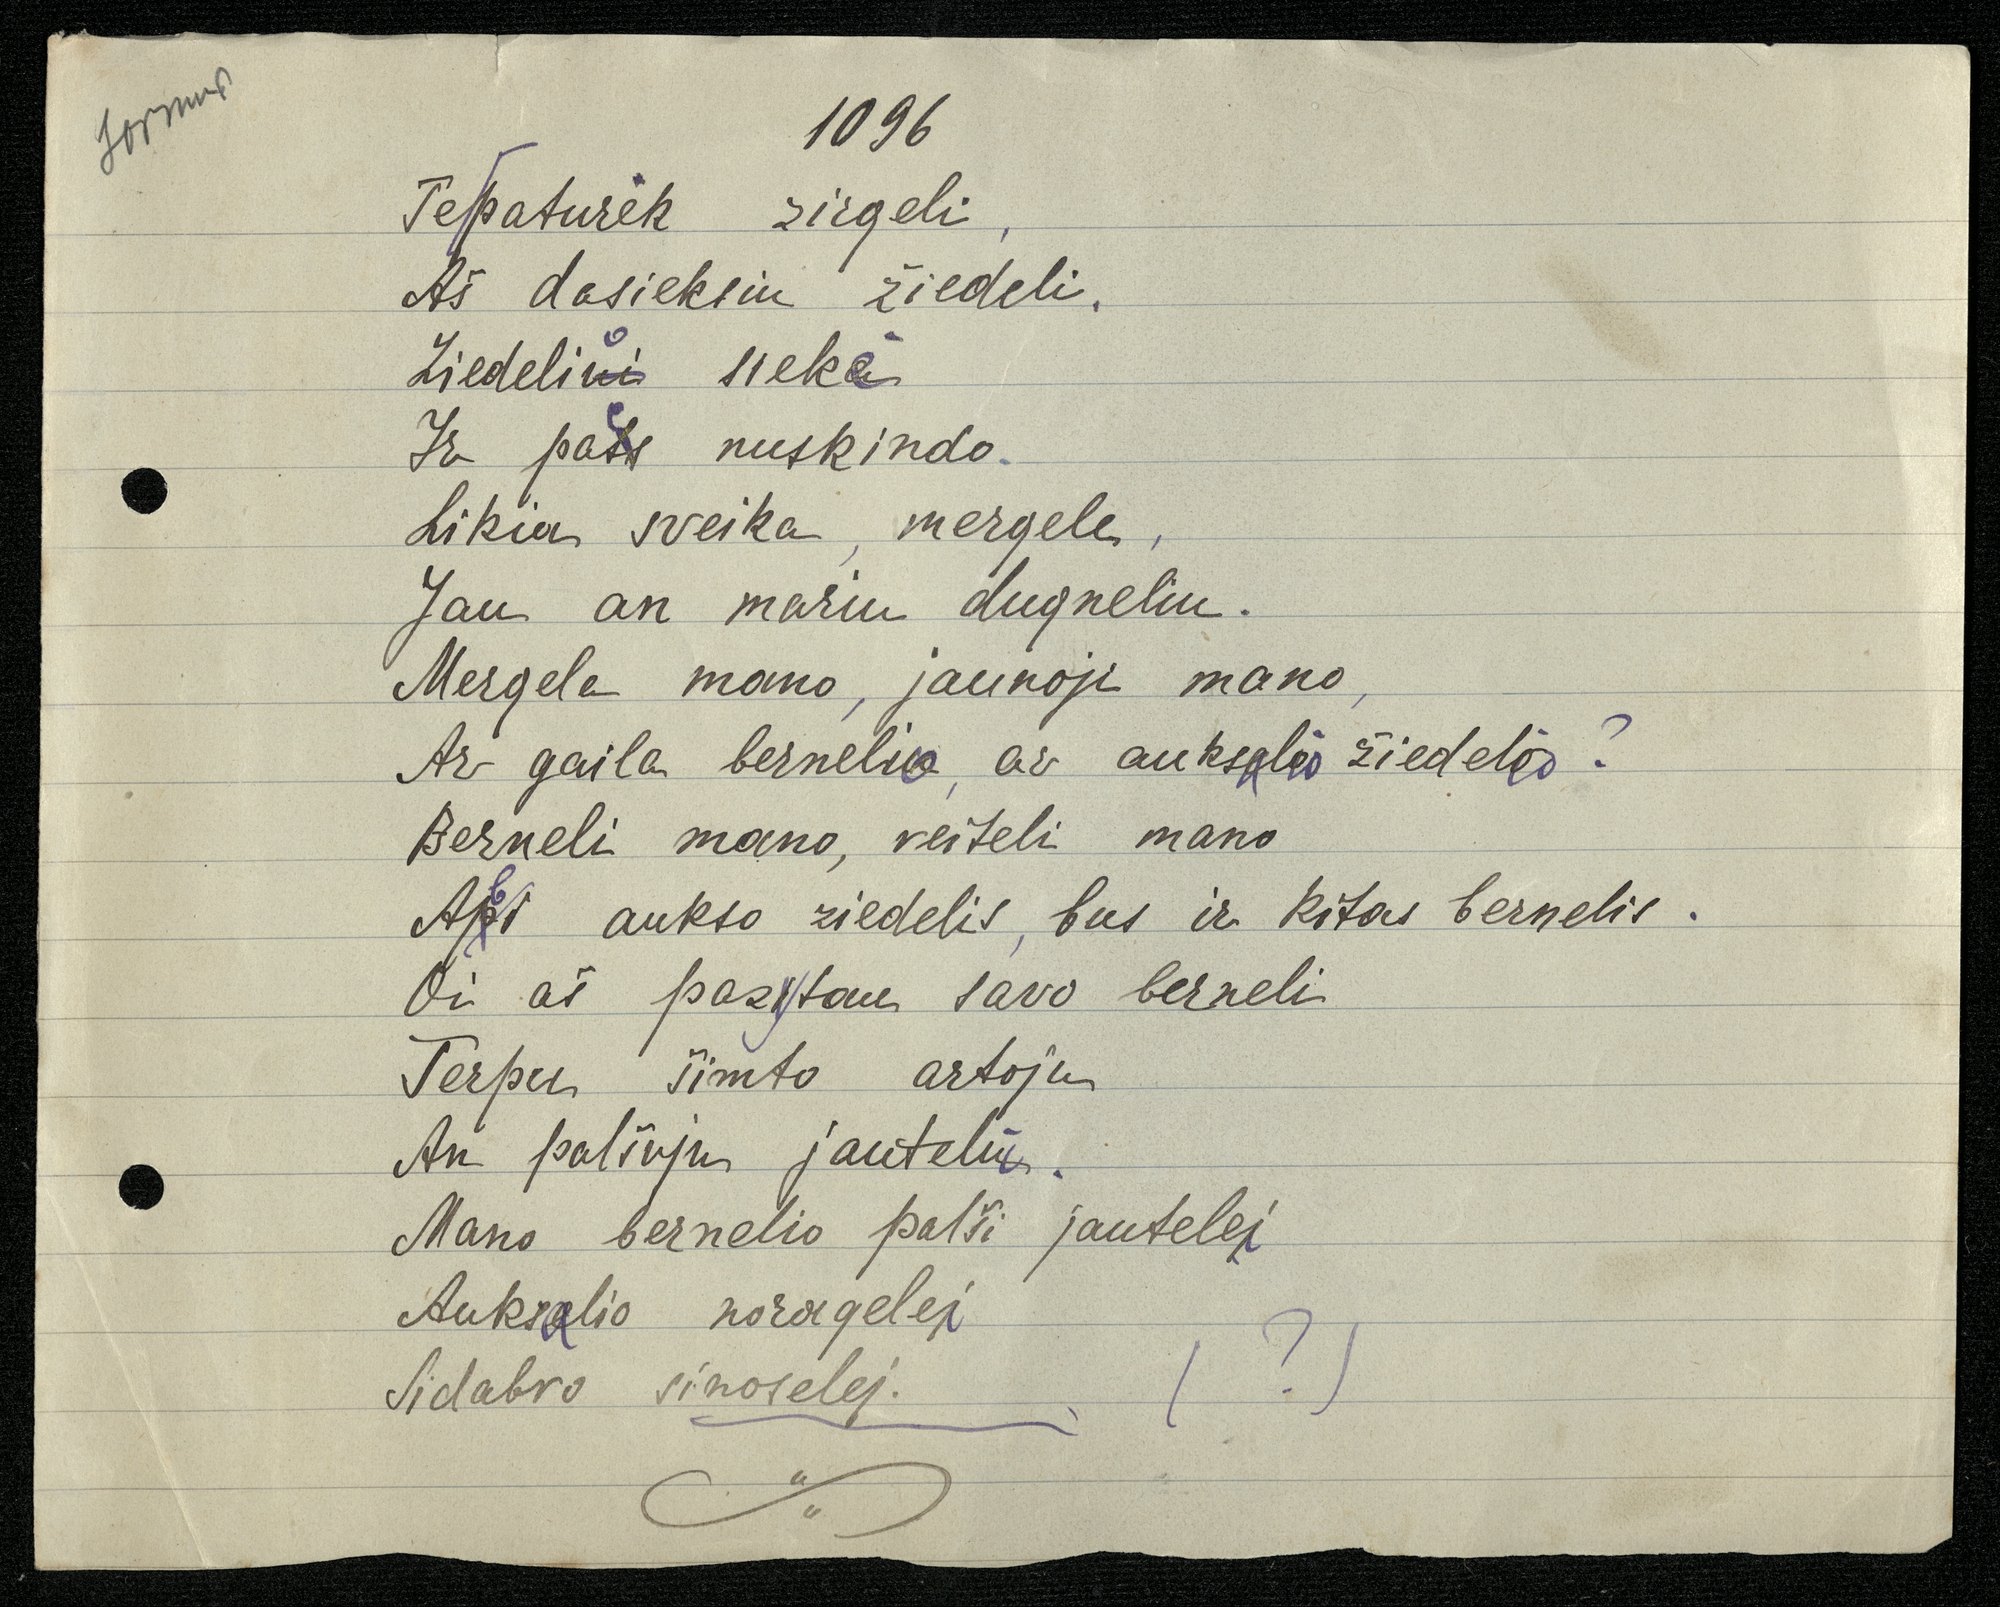 1096
Te paturėk zirgeli,
Aš dasieksiu žiedeli.
Žiedelio siekė
Ir pats nuskindo.
Likia sveika, mergele,
Jau an mariu dugneliu.
Mergele mano, jaunoji mano,
Ar gaila bernelio, ar auksalio žiedelio?
Berneli mano, veiteli mano
Abi aukso ziedelis, bus ir kitas bernelis.
Oi aš pazystau savo berneli
Terpu šimto artoju
An palšuju jauteliu.
Mano bernelio palši jautelei
Auksalio noragelei
Sidabro sinoselej. (?)